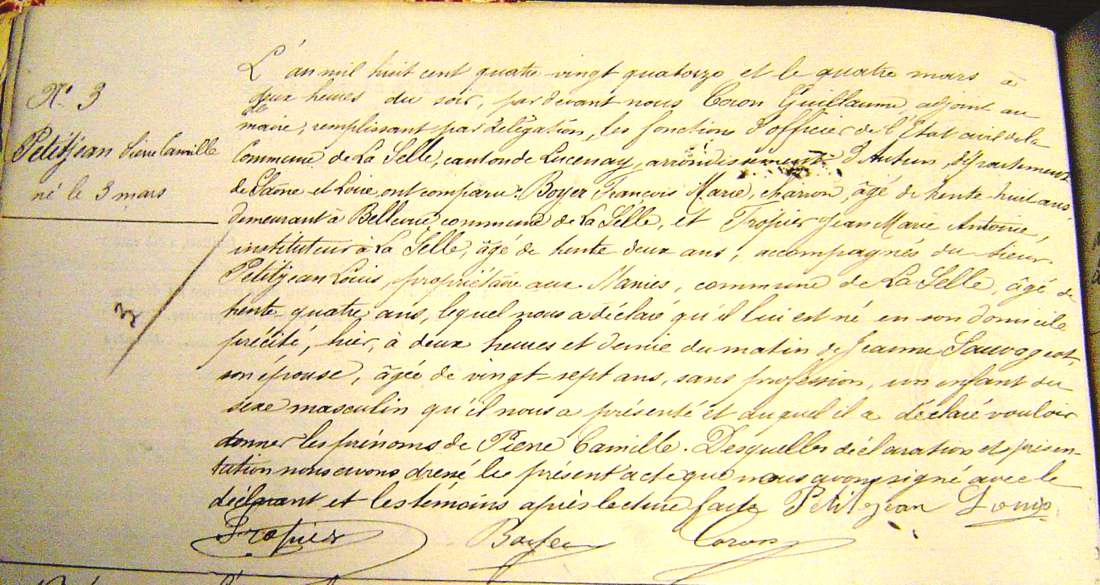 N° 3
Petitjean Pierre Camille
né le 3 mars
3
L'an mil huit cent quatre-vingt quatorze et le quatre mars à
deux heures du soir, par devant nous Coron Guillaume, adjoint au
maire, remplissant par délégation, les fonctions d'officier de l'Etat civil de la
Commune de La Selle, canton de Lucenay, arrondissement d'Autun, département
de Saône et Loire, ont comparu: Boyer François Marie, charron, âgé de trente-huit ans,
demeurant à Bellevue, commune de La Selle, et Tropier Jean Marie Antoine,
instituteur à La Selle, âgé de trente deux ans, accompagnés du sieur
Petitjean Louis, propriétaire aux Manies, commune de La Selle, âgé de
trente quatre ans, lequel nous a déclaré qu'il lui est né en son domicile
précité, hier, à deux heures et demie du matin de Jeanne Sauvageot,
son épouse, âgée de vingt-sept ans, sans profession, un enfant du
sexe masculin qu'il nous a présenté et auquel il a déclaré vouloir
donner les prénoms de Pierre Camille. Desquelles déclaration et présen-
tation nous avons dressé le présent acte que nous avons signé avec le
déclarant et les témoins après lecture faite Petitjean Louis
Tropier Boyer Coron